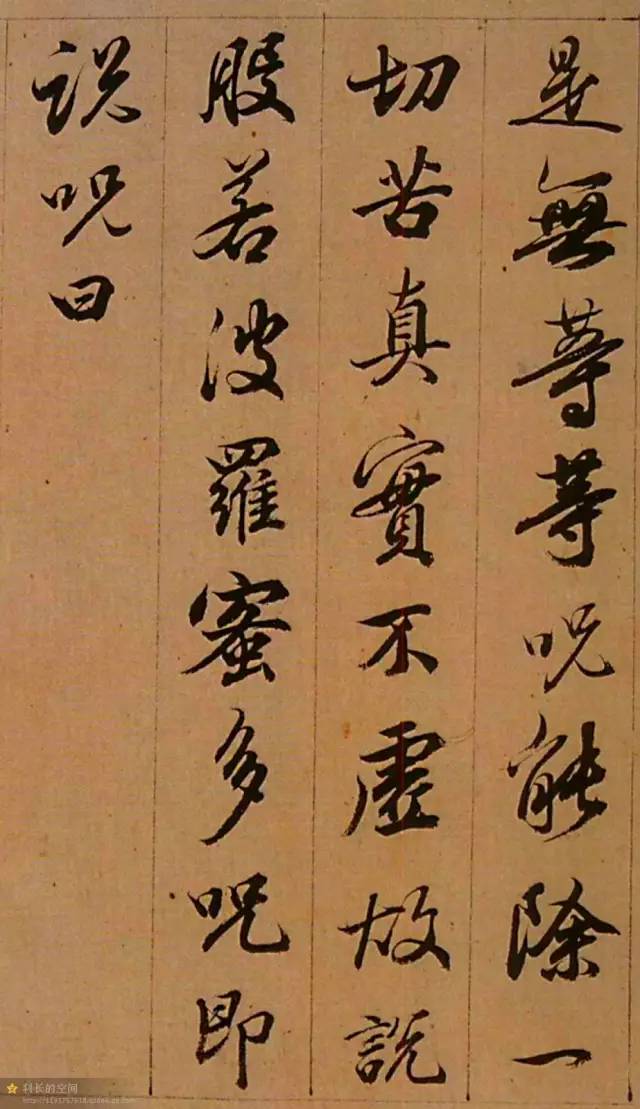 是無等等呪能除一
切苦真實不虛故說
般若波羅蜜多呪即
說呪曰
科长的空间